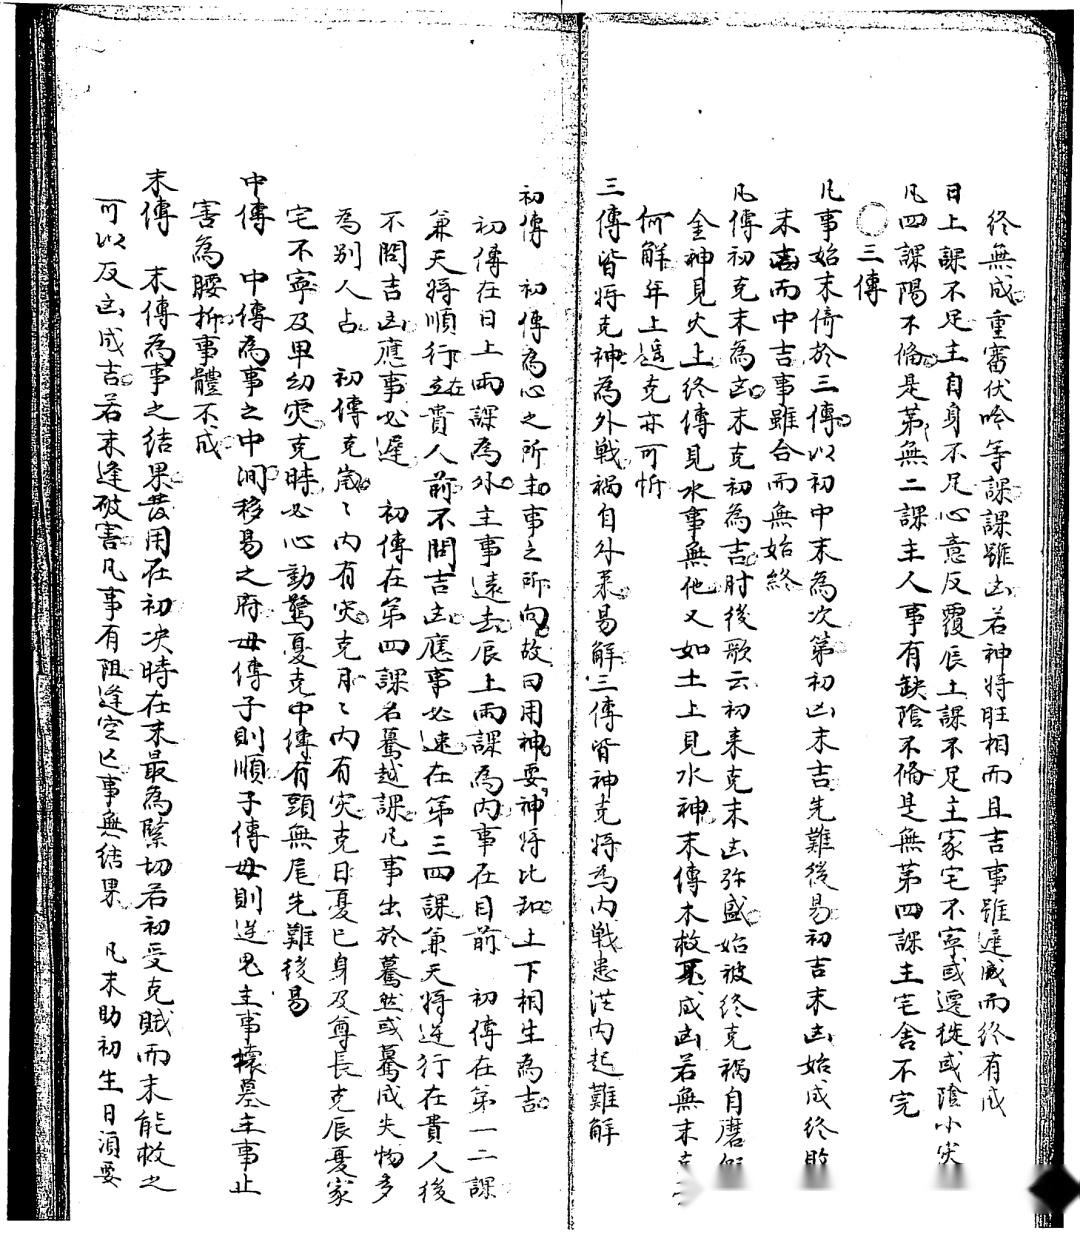 終無成重審伏吟等課課雖凶若神將旺相而且吉事雖遲威而終有成
日上課不足主自身不足心意反覆辰上課不足主家宅不寧或遷徙或陰小災
凡四課陽不俻是第無二課主人事有缺陰不俻是無第四課主宅舍不完
三傳
凡事始末倚於三傳以初中末為次第初凶末吉先難後易初吉末凶始成終敗
末凶而中吉事雖合而無始終
凡傳初克末為凶末克初為吉肘後歌云初來克末凶弥盛始被終克禍自磨
金神見火上終傳見水事無他又如土上見水神末傳木救成凶若無末
何解年上遥克亦可忻
三傳皆將克神為外戦禍自外来易解三傳皆神克將為内戦患從内起難解
初傳 初傳為心之所主事之所向故曰用神要神將比和上下相生為吉
初傳在日上兩課為外主事遠去辰上兩課為内事在目前 初傳在第一二課
兼天將順行在貴人前不問吉凶應事必速在第三四課兼天將逆行在貴人後
不問吉凶應事必遲 初傳在第四課名驀越課凡事出於驀然或驀成失物多
為別人占 初傳克歲歲内有災克月月内有災克日憂已身及尊長克辰憂家
宅不寧及卑幼災克時必心動驚憂克中傳有頭無尾先難後易
中傳 中傳為事之中間移易之府母傳子則順子傳母則逆鬼主事壞墓主事止
害為腰折事體不成
末傳 末傳為事之結果發用在初决時在末最為緊切若初受克賊而末能救之
可以反凶成吉若末逢破害凡事有阻逢空亡事無結果 凡末助初生日須要